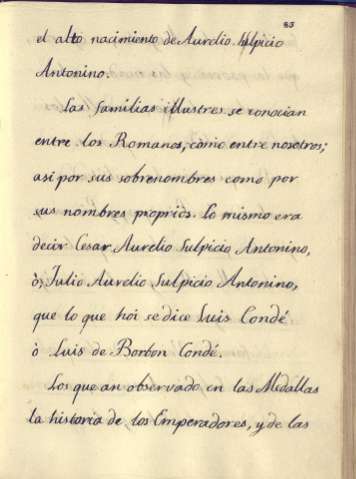 85
el alto nacimiento de Aurelio Sulpicio
Antonino.
Las familias illustres se conocian
entre los Romanos, como entre nosotros;
asi por sus sobrenombres como por
sus nombres proprios. Lo mismo era
decir Cesar Aurelio Sulpicio Antonino,
ò, Julio Aurelio Sulpicio Antonino,
que lo que hoi se dice Luis Condé
ò Luis de Borbon Condé.
Los que an observado en las Medallas
la historia de los Emperadores, y de las